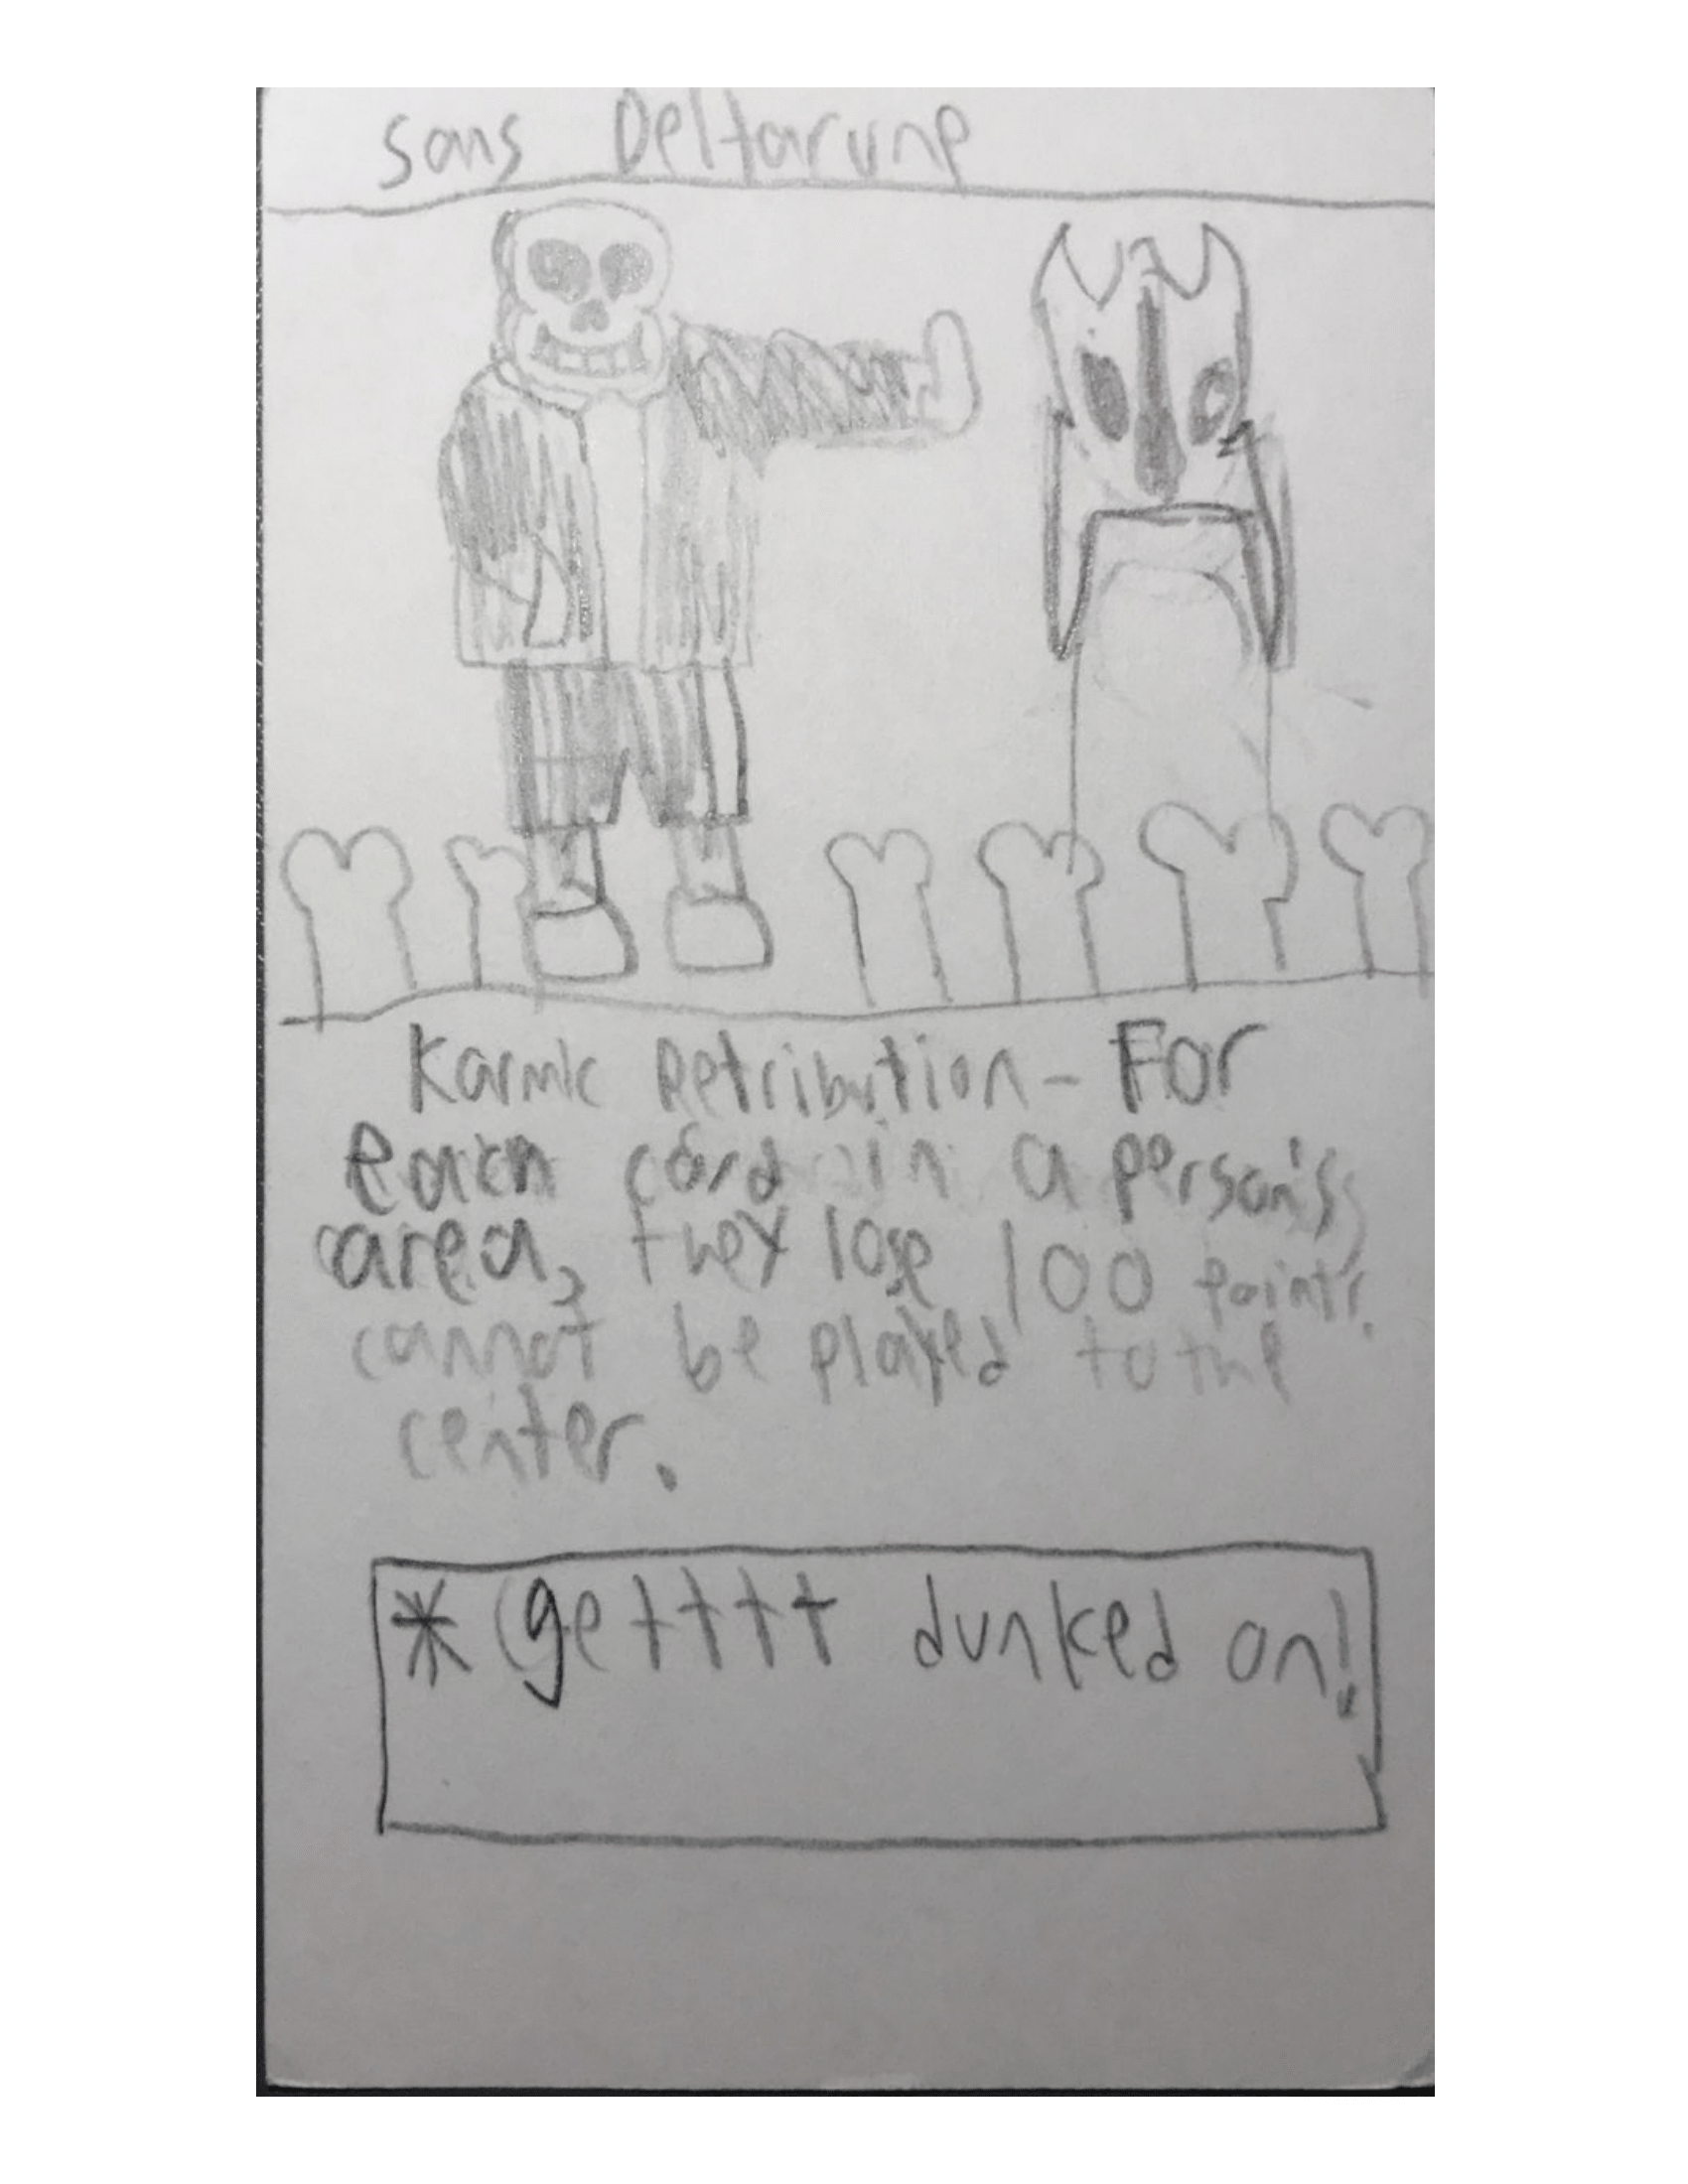 Sans Deltarune
Karmic Retribution - For
Each card in a person's
area, they lose 100 points.
cannot be played to the
center.
* getttt dunked on!